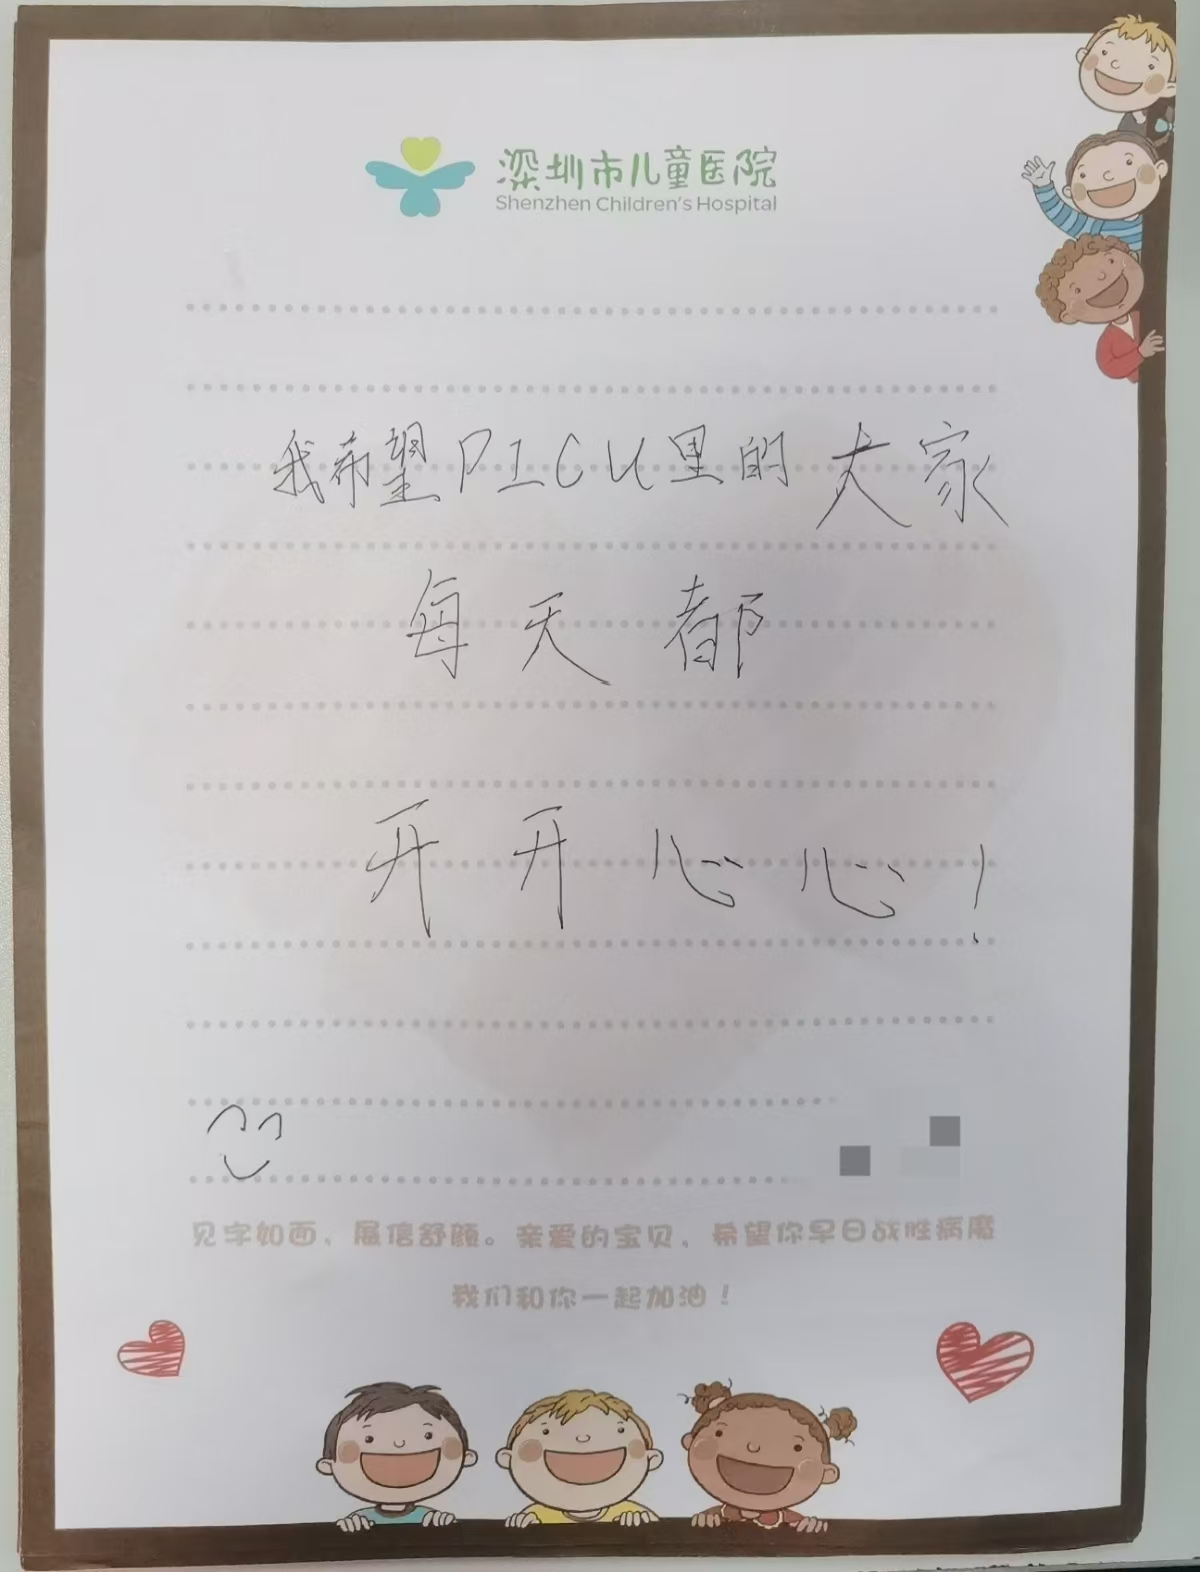 深圳市儿童医院
Shenzhen Children's Hospital
我希望PICU里的大家
每天都
开开心心！
见字如面，展信舒颜。亲爱的宝贝，希望你早日战胜病魔
我们和你一起加油！